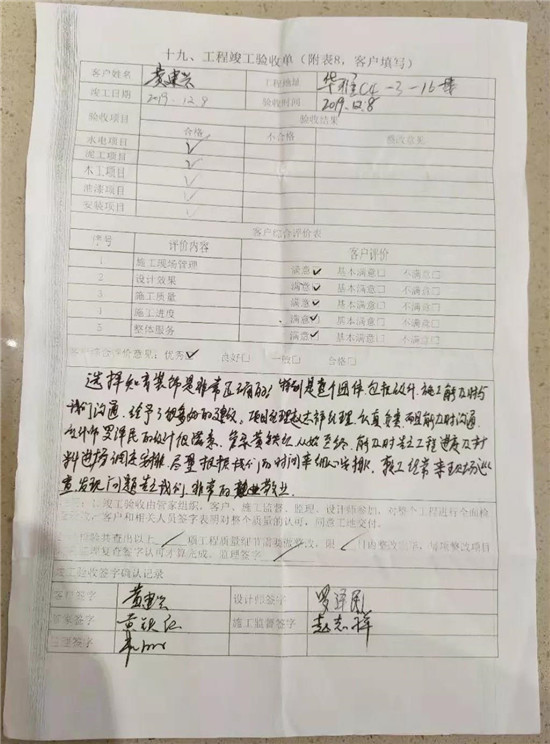 十九、工程竣工验收单（附表8，客户填写）
客户姓名 黄建兰 工程地址 华雅C4-3-15楼
竣工日期 2019.12.9 验收时间 2019.12.8
验收项目 验收结果
合格 不合格 整改意见
水电项目 ✓
泥工项目 ✓
木工项目 ✓
油漆项目 ✓
安装项目 ✓
客户综合评价表
序号 评价内容 客户评价
1 施工现场管理 满意☑ 基本满意□ 不满意□
2 设计效果 满意☑ 基本满意□ 不满意□
3 施工质量 满意☑ 基本满意□ 不满意□
4 施工进度 满意☑ 基本满意□ 不满意□
5 整体服务 满意☑ 基本满意□ 不满意□
客户综合评价意见：优秀☑ 良好□ 一般□ 合格□
选择 装饰是非常正确的；特别是整个团体包括设计、施工能及时与
我们沟通，给予了很多好的建议。项目经理赵志祥经理，认真负责，而且能及时沟通
设计师罗泽民的设计很 管家黄 从始至终，能及时 工程进度及材
料进场调度安排，尽量根据我们的时间来细心安排， 经常来现场巡
查，发现问题 我们，非常的 敬业。
1、竣工验收由管家组织，客户、施工监督、监理、设计师参加，对整个工程进行全面检
客户和相关人员签字表明对整个质量的认可，同意工地交付。
检验共查出以上 项工程质量细节需要改整改，限 日内整改完毕，每项整改项目
监理复查签字认可才算完成。监理签字
竣工验收签字确认记录
客户签字 黄建兰 设计师签字 罗泽民
管家签字 黄 施工监督签字 赵志祥
监理签字